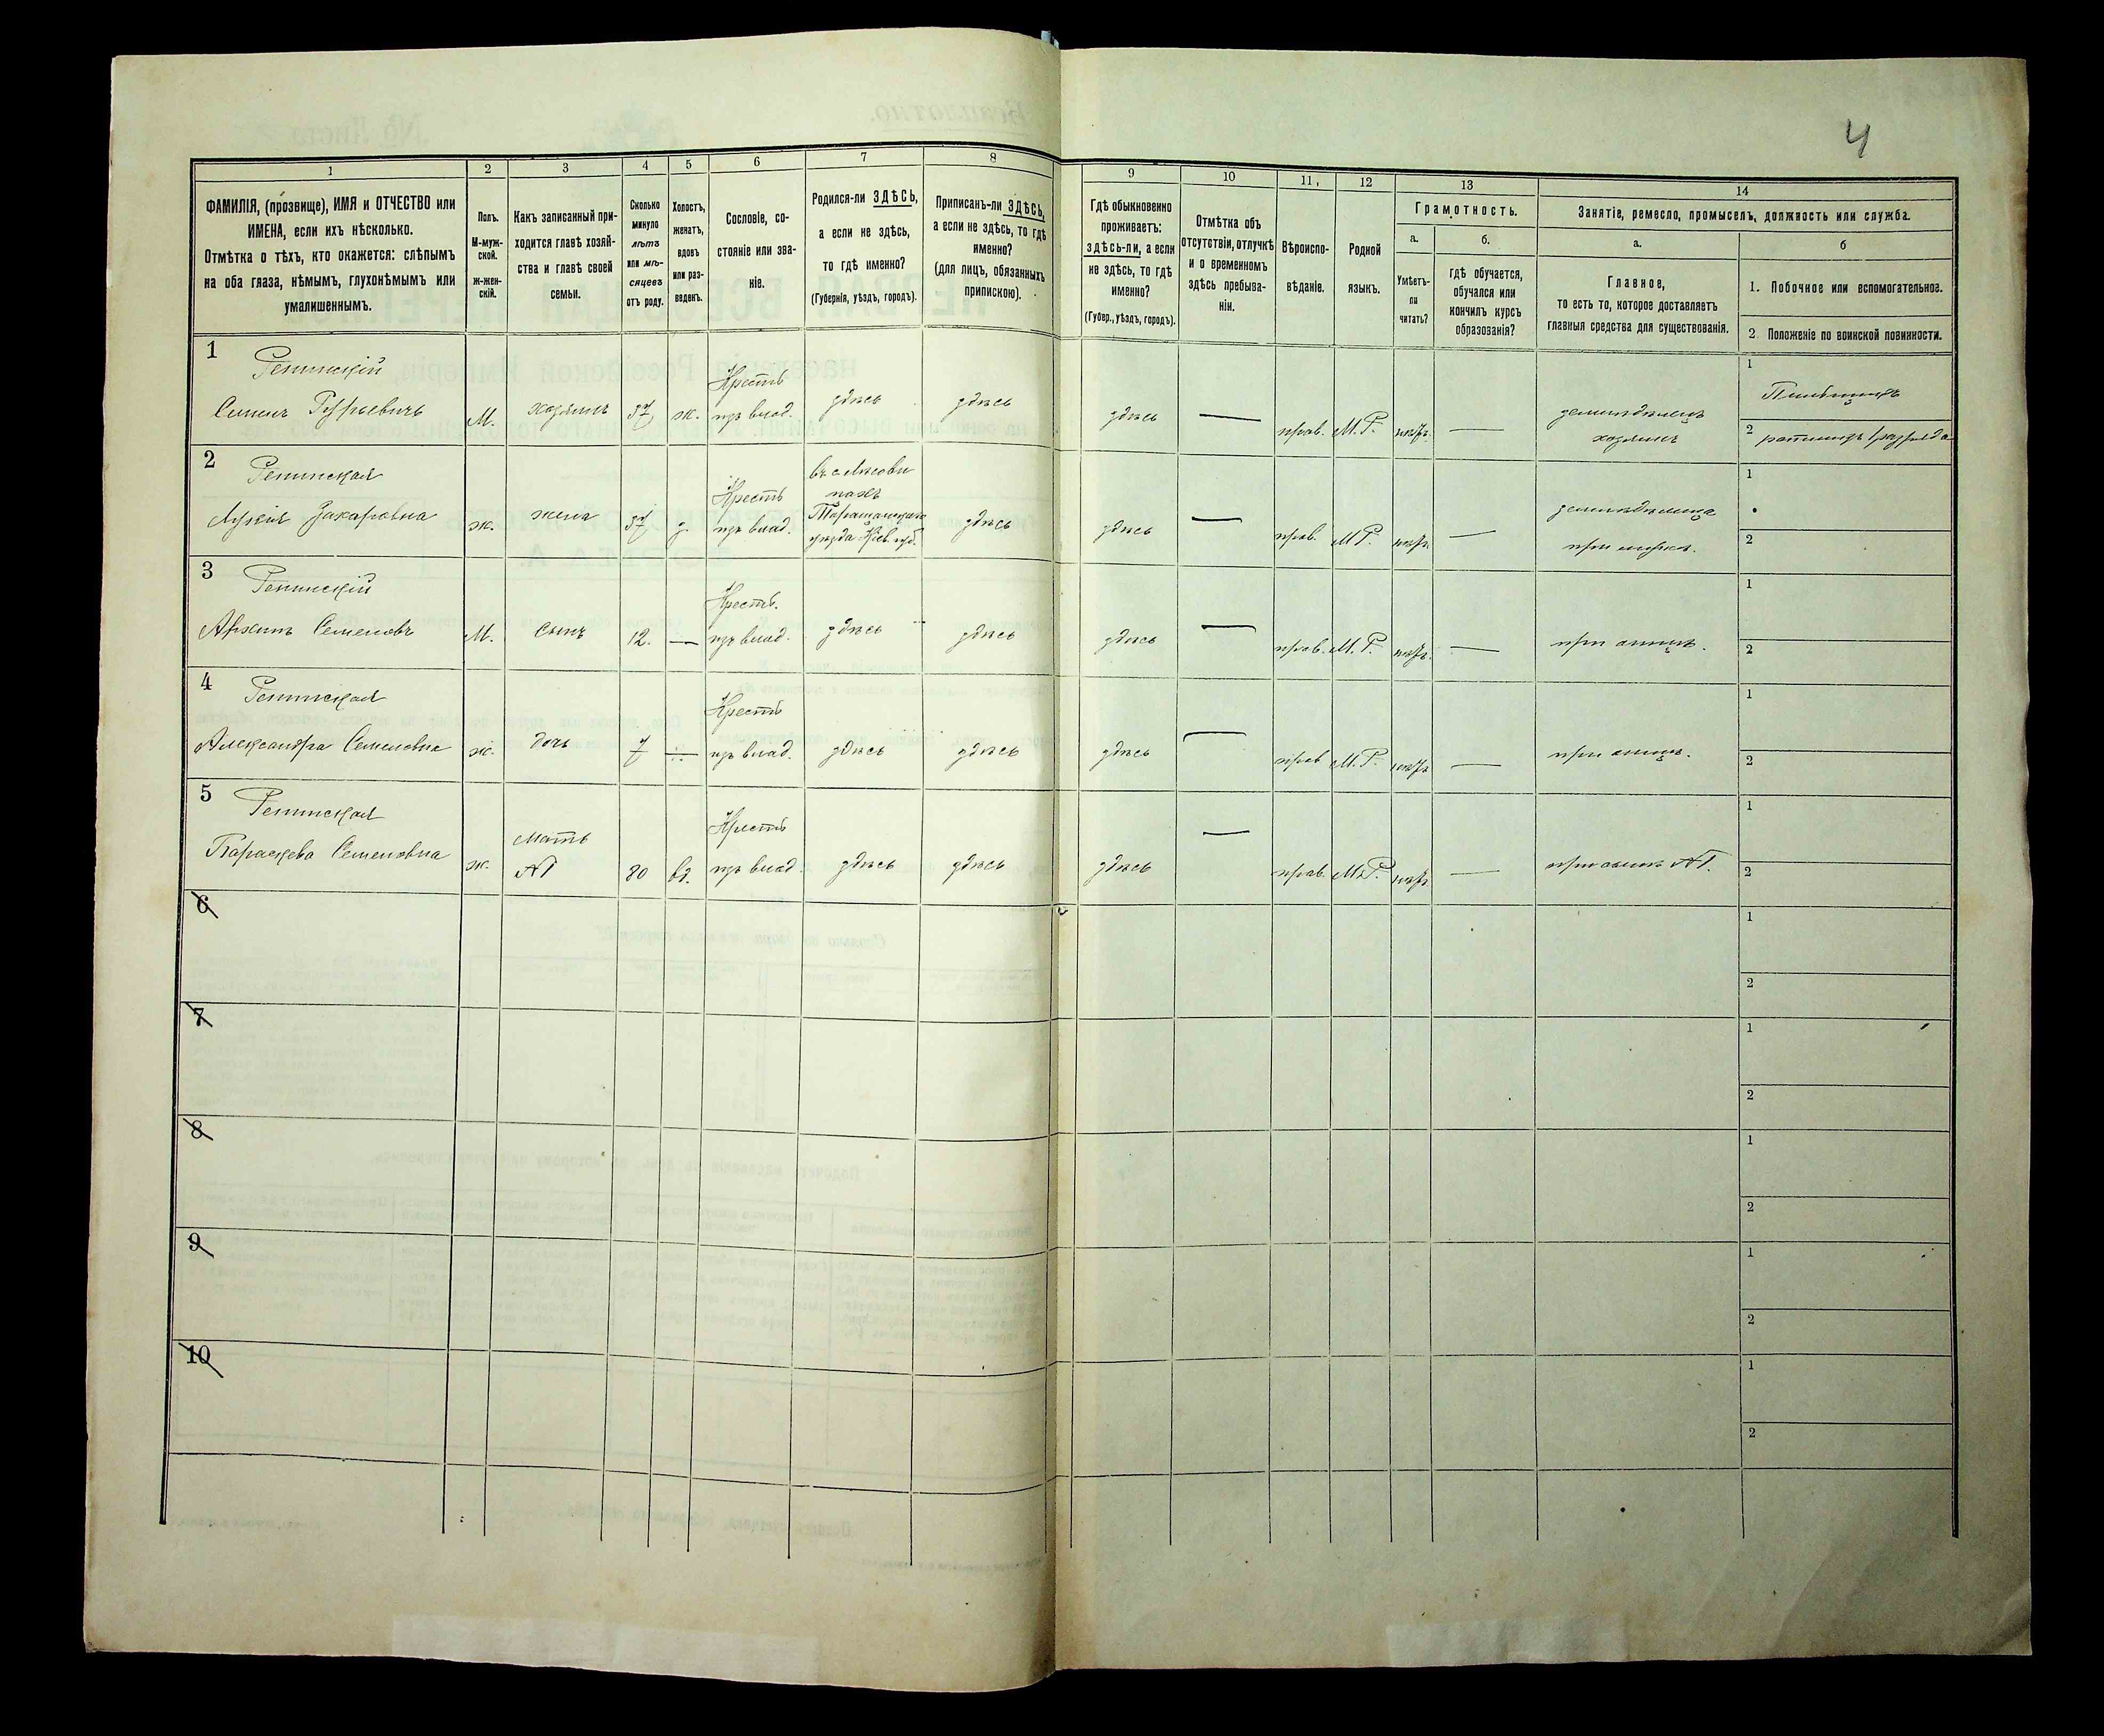 4
1 2 3 4 5 6 7 8 9 10 11 12 13 14
ФАМИЛІЯ, (прозвище), ИМЯ и ОТЧЕСТВО или
ИМЕНА, если ихъ нѣсколько.
Отмѣтка о тѣхъ, кто окажется: слѣпымъ
на оба глаза, нѣмымъ, глухонѣмымъ или
умалишеннымъ.
Полъ.
М-муж-
ской.
Ж-жен-
скій.
Какъ записанный при-
ходится главѣ хозяй-
ства и главѣ своей
семьи.
Сколько
минуло
лѣтъ
или мѣ-
сяцевъ
отъ роду.
Холостъ,
женатъ,
вдовъ
или раз-
веденъ.
Сословіе, со-
стояніе или зва-
ніе.
Родился-ли ЗДѢСЬ,
а если не здѣсь,
то гдѣ именно?
(Губернія, уѣздъ, городъ).
Приписанъ-ли ЗДѢСЬ,
а если не здѣсь, то гдѣ
именно?
(для лицъ, обязанныхъ
припискою).
Гдѣ обыкновенно
проживаетъ:
здѣсь-ли, а если
не здѣсь, то гдѣ
именно?
(Губер., уѣздъ, городъ).
Отмѣтка объ
отсутствіи, отлучкѣ
и о временномъ
здѣсь пребыва-
ніи.
Вѣроиспо-
вѣданіе.
Родной
языкъ.
Грамотность.
а.
Умѣетъ-
ли
читать?
б.
гдѣ обучается,
обучался или
кончилъ курсъ
образованія?
Занятіе, ремесло, промыселъ, должность или служба.
а.
Главное,
то есть то, которое доставляетъ
главныя средства для существованія.
б
1. Побочное или вспомогательное.
2. Положеніе по воинской повинности.
1
Семенъ Гурьевичъ
М.
хозяинъ
37
ж.
Крестъ
изъ влад.
здѣсь
здѣсь
здѣсь
—
прав.
М.Р.
—
земледѣлецъ
хозяинъ
1
Пильщикъ
2 ратникъ 1 разряда
2
Захаровна
ж.
жена
37
з.
Крестъ
изъ влад.
Таращанскаго
уѣзда Кіев. губ.
здѣсь
здѣсь
—
прав.
М.Р.
—
земледѣлица
при мужѣ.
1
2
3
Архипъ Семеновъ
М.
сынъ
12.
—
Крестъ.
изъ влад.
здѣсь
здѣсь
здѣсь
—
прав.
М.Р.
—
при отцѣ.
1
2
4
Александра Семеновна
ж.
дочь
7
—
Крестъ
изъ влад.
здѣсь
здѣсь
здѣсь
—
прав
М.Р.
—
при отцѣ.
1
2
5
Параскева Семеновна
ж.
мать
№1
80
вд.
Крестъ
изъ влад.
здѣсь
здѣсь
здѣсь
—
прав.
М.Р.
—
при сынѣ №1.
1
2
6
1
2
7
1
2
8
1
2
9
1
2
10
1
2